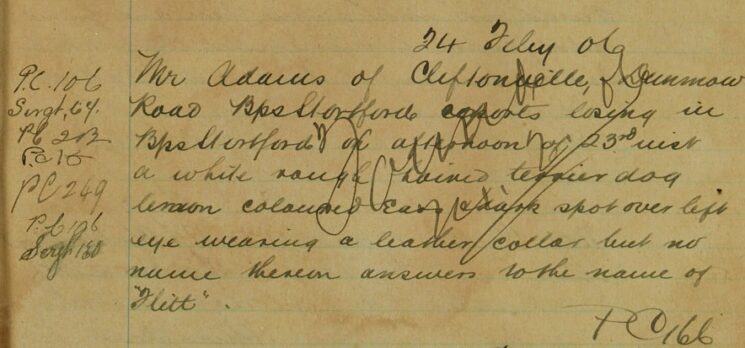 24 Feby 06
P.C. 106
Sergt, 64.
PC 202
P.C. 15
PC 249
P.C 196
Sergt 180
Mr Adams of Cliftonville, Dunmow
Road BpsStortford reports losing in
BpsStortford on afternoon of 23rd inst
a white rough haired terrier dog
lemon coloured Ears dark spot over left
eye wearing a leather collar but no
name thereon answers to the name of
"Flitt".
PC 166
Found